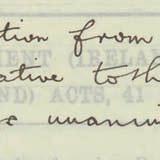 tion from
MENT (IREL
ative to th
ND) ACTS, 41
s unanim